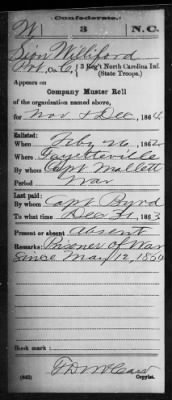 Confederate.
W 3 N.C.
Sion Williford
Pvt., Co. C, 3 Reg't North Carolina Inf.
(State Troops.)
Appears on
Company Muster Roll
of the organization named above,
for Nov & Dec, 1864.
Enlisted:
When Feby 26, 1862
Where Fayetteville
By whom Capt Mallett
Period War
Last paid:
By whom Capt Byrd
To what time Dec 31, 1863
Present or absent Absent
Remarks: Prisoner of War
since May 12, 1864
Book mark:
(642) Copyist.